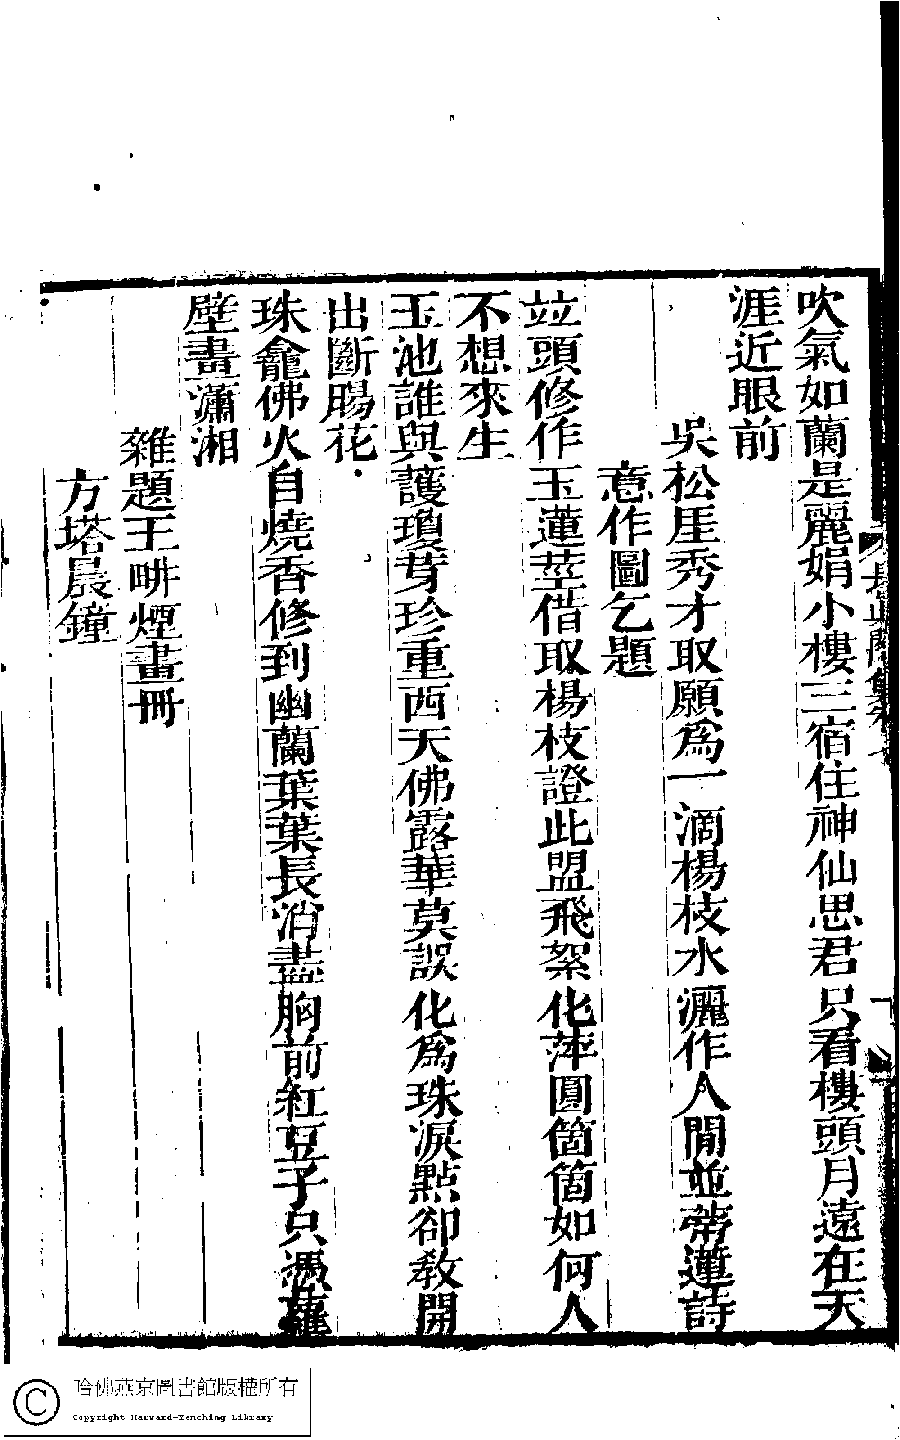 吹氣如蘭是麗娟小樓三宿住神仙思君只看樓頭月遠在天
涯近眼前
吳松厓秀才取願爲一滴楊枝水灑作人閒並蒂蓮詩
意作圖乞題
竝頭修作玉蓮莖借取楊枝證此盟飛絮化萍圓箇箇如何人
不想來生
玉池誰與護瓊芽珍重西天佛露華莫誤化爲珠淚點卻敎開
出斷腸花
珠龕佛火自燒香修到幽蘭葉葉長消盡胸前紅豆子只憑蘿
壁畫瀟湘
雜題王畊煙畫冊
方塔晨鐘
長真閣集卷
哈佛燕京圖書館版權所有
Copyright Harvard-Yenching Library